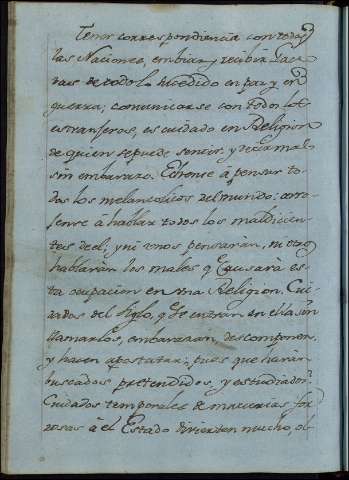 Tener correspondiencia con todas
las Naciones, embiar, y recibir
de todo lo sucedido en paz, y en
guerra; comunicarse con todos los
estranjeros, es cuidado en Religion
de quien se puede sentir, y reclamar
sin embarazo. Echense á pensar to-
dos los melancolicos del mundo: arro-
jense á hablar todos los maldicien-
tes de el; y ni unos pensarán, ni otros
hablarán los males q.e causará es-
ta ocupacion en una Religion. Cui-
dados del siglo, q.e se entran en ella sin
llamarlos, embarazan, descomponen,
y hacen apostatar; pues que harán
buscados, pretendidos, y estudiados?
Cuidados temporales de materias for-
zosas á el Estado divierten mucho, ol-